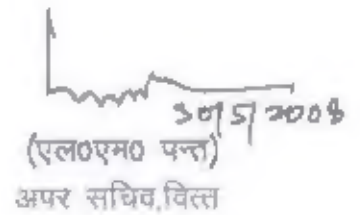 30/5/2008
(एल0एम0 पन्त)
अपर सचिव,वित्त